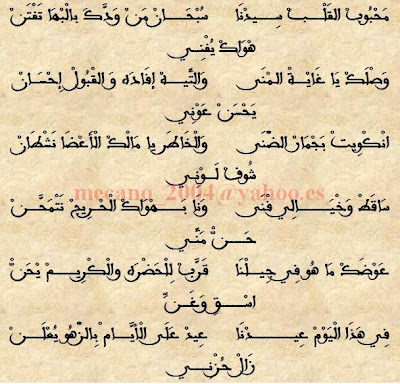 مَحْبُوبْ القَلْبْ سِيدْنَا سُبْحَانْ مَنْ وَدَّكْ بالْبْهَا تَفْتَنْ
هَوَاكْ يُفْنِي
وَصْلَكْ يَا غَايَةْ الْمْنَى وَالتِّيهْ إفَادَه وَالقْبُولْ إحْسَانْ
يَحْسَنْ عَوْنِي
انْكْوِيتْ بَجْمَارْ الضّْنَى وَالْخَاطَرْ يا مَالَكْ الْأَعْضَا نَشْطَانْ
شُوفْ لَوْنِي
mecano_2004@yahoo.es
سَاقَطْ وَخْيَالِي فْنَى وَنَا بَهْوَاكْ الْحْرِيجْ نَتْمَحَّنْ
حَنّْ مَنِّي
عَوْضَكْ مَا هُو فِي جِيلْنَا قَرَّبْ لِلْحَضْرَه والْكْرِيمْ يْحَنّْ
اسْقِ وَغَنِّ
فِي هَذَا الْيَوْمْ عِيدْنَا عِيدْ عَلَى الْأيَّامْ بِالزّْهُو يُعْلَنْ
زَالْ حُزْنِي